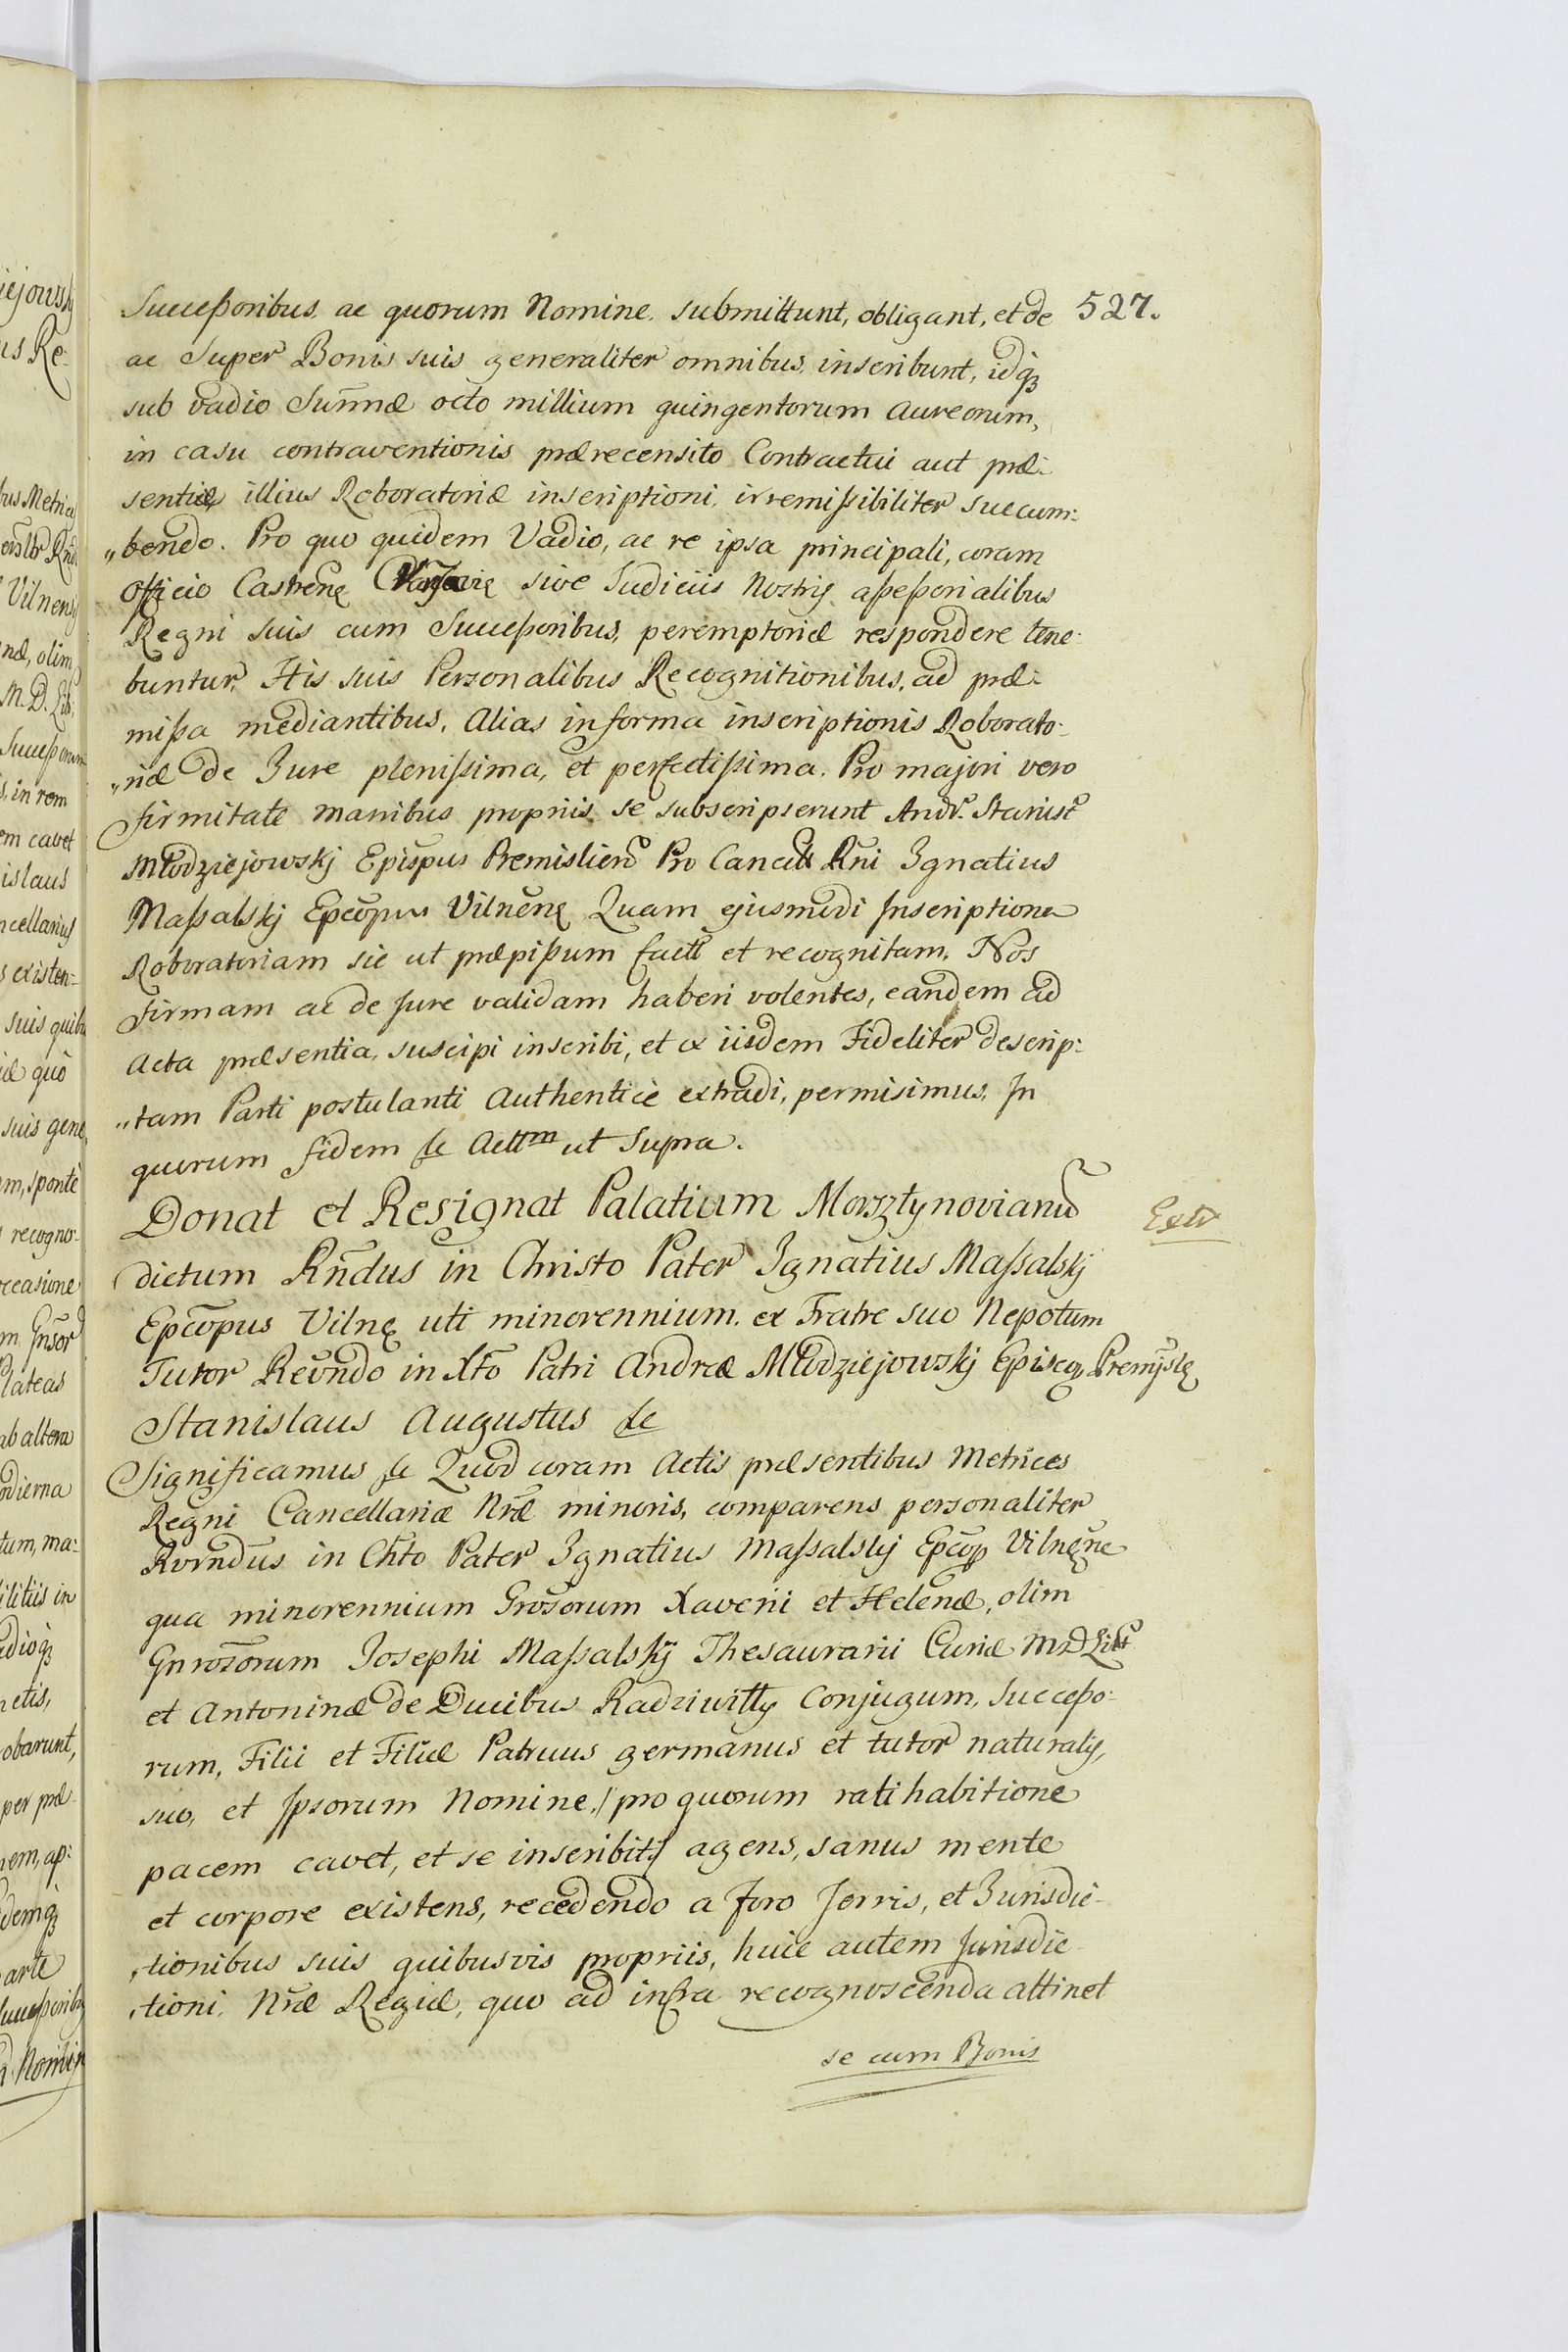 527.
Succeßoribus, ac quorum Nomine, submittunt, obligant, et de
ac super Bonis suis generaliter omnibus, inscribunt, idqꝫ
sub vadio Sum̃æ octo millium quingentorum Aureorum,
in casu contraventionis prærecensito Contractui aut præ-
sentiæ illius Roboratoriæ inscriptioni, irremißibiliter succum-
„bendo. Pro quo quidem Vadio, ac re ipsa principali, coram
Officio Castren̄ę Varsavię sive Judiciis Nostris aßeßorialibus
Regni suis cum Succeßoribus, peremptoriæ respondere tene-
buntur, His suis Personalibus Recognitionibus, ad præ-
mißa mediantibus, Alias in forma inscriptionis Roborato-
„riæ de Jure plenißima, et perfectißima. Pro majori vero
firmitate manibus propriis se subscripserunt Andr. Stanisł
Młodziejowskj Epis̄pus Premislien̄ Pro Cancell Rñi Ignatius
Maßalskj Epc̄opus Vilnēnę Quam ejusmodi Inscriptionem
Roboratoriam sic ut præpißum factt et recognitam, Nos
firmam ac de jure validam haberi volentes, eandem ad
Acta præsentia, suscipi inscribi, et ex iisdem Fideliter descrip-
„tam Parti postulanti Authenticè extradi, permisimus, In
quorum fidem &c Acttm ut supra.
Donat et Resignat Palatium Morsztynovianū
Extr
dictum Rñdus in Christo Pater Ignatius Maßalskj
Epc̄opus Vilnę uti minorennium ex Fratre suo Nepotum
Tutor Revn̄do in Xtō Patri Andreæ Młodziejowskj Episcop Premyslę
Stanislaus Augustus &c
Significamus &c Quod coram Actis præsentibus Metrices
Regni Cancellariæ Nr̄æ minoris, comparens personaliter
Rvrndūs in Chtō Pater Ignatius Maßalskj Epc̄op Vilnęñe
qua minorennium Grōsorum Xaverii et Helenæ, olim
Gnrosōrum Josephi Maßalskj Thesaurarii Curiæ M D Litt
et Antoninæ de Ducibus Radziwiłły Conjugum, Succeßo-
rum, Filii et Filiæ Patruus germanus et tutor naturalis,
suo, et Ipsorum Nomine, /: pro quorum rati habitione
pacem cavet, et se inscribit :/ agens, sanus mente
et corpore existens, recedendo a Foro Terris, et Jurisdic-
„tionibus suis quibusvis propriis, huic autem Jurisdic-
„tioni, Nr̄æ Regiæ, quo ad infra recognoscenda attinet
se cum Bonis
iejowskj
us Re-
bus Metrica
Vilnens
næ, olim
M. D. Lit
Succeßorum
s, in rem
em cavet
islaus
ncellarius
s existen-
suis quibus
iæ quò
suis gene
m, spontè
recogno-
ccasione
m Gnsor
plateas
ab altera
odierna
tum, ma-
ilitiis in
adioqꝫ
netis,
obarunt,
per præ-
nem, ap-
demqꝫ
parte
Succeßoribus
Nomin